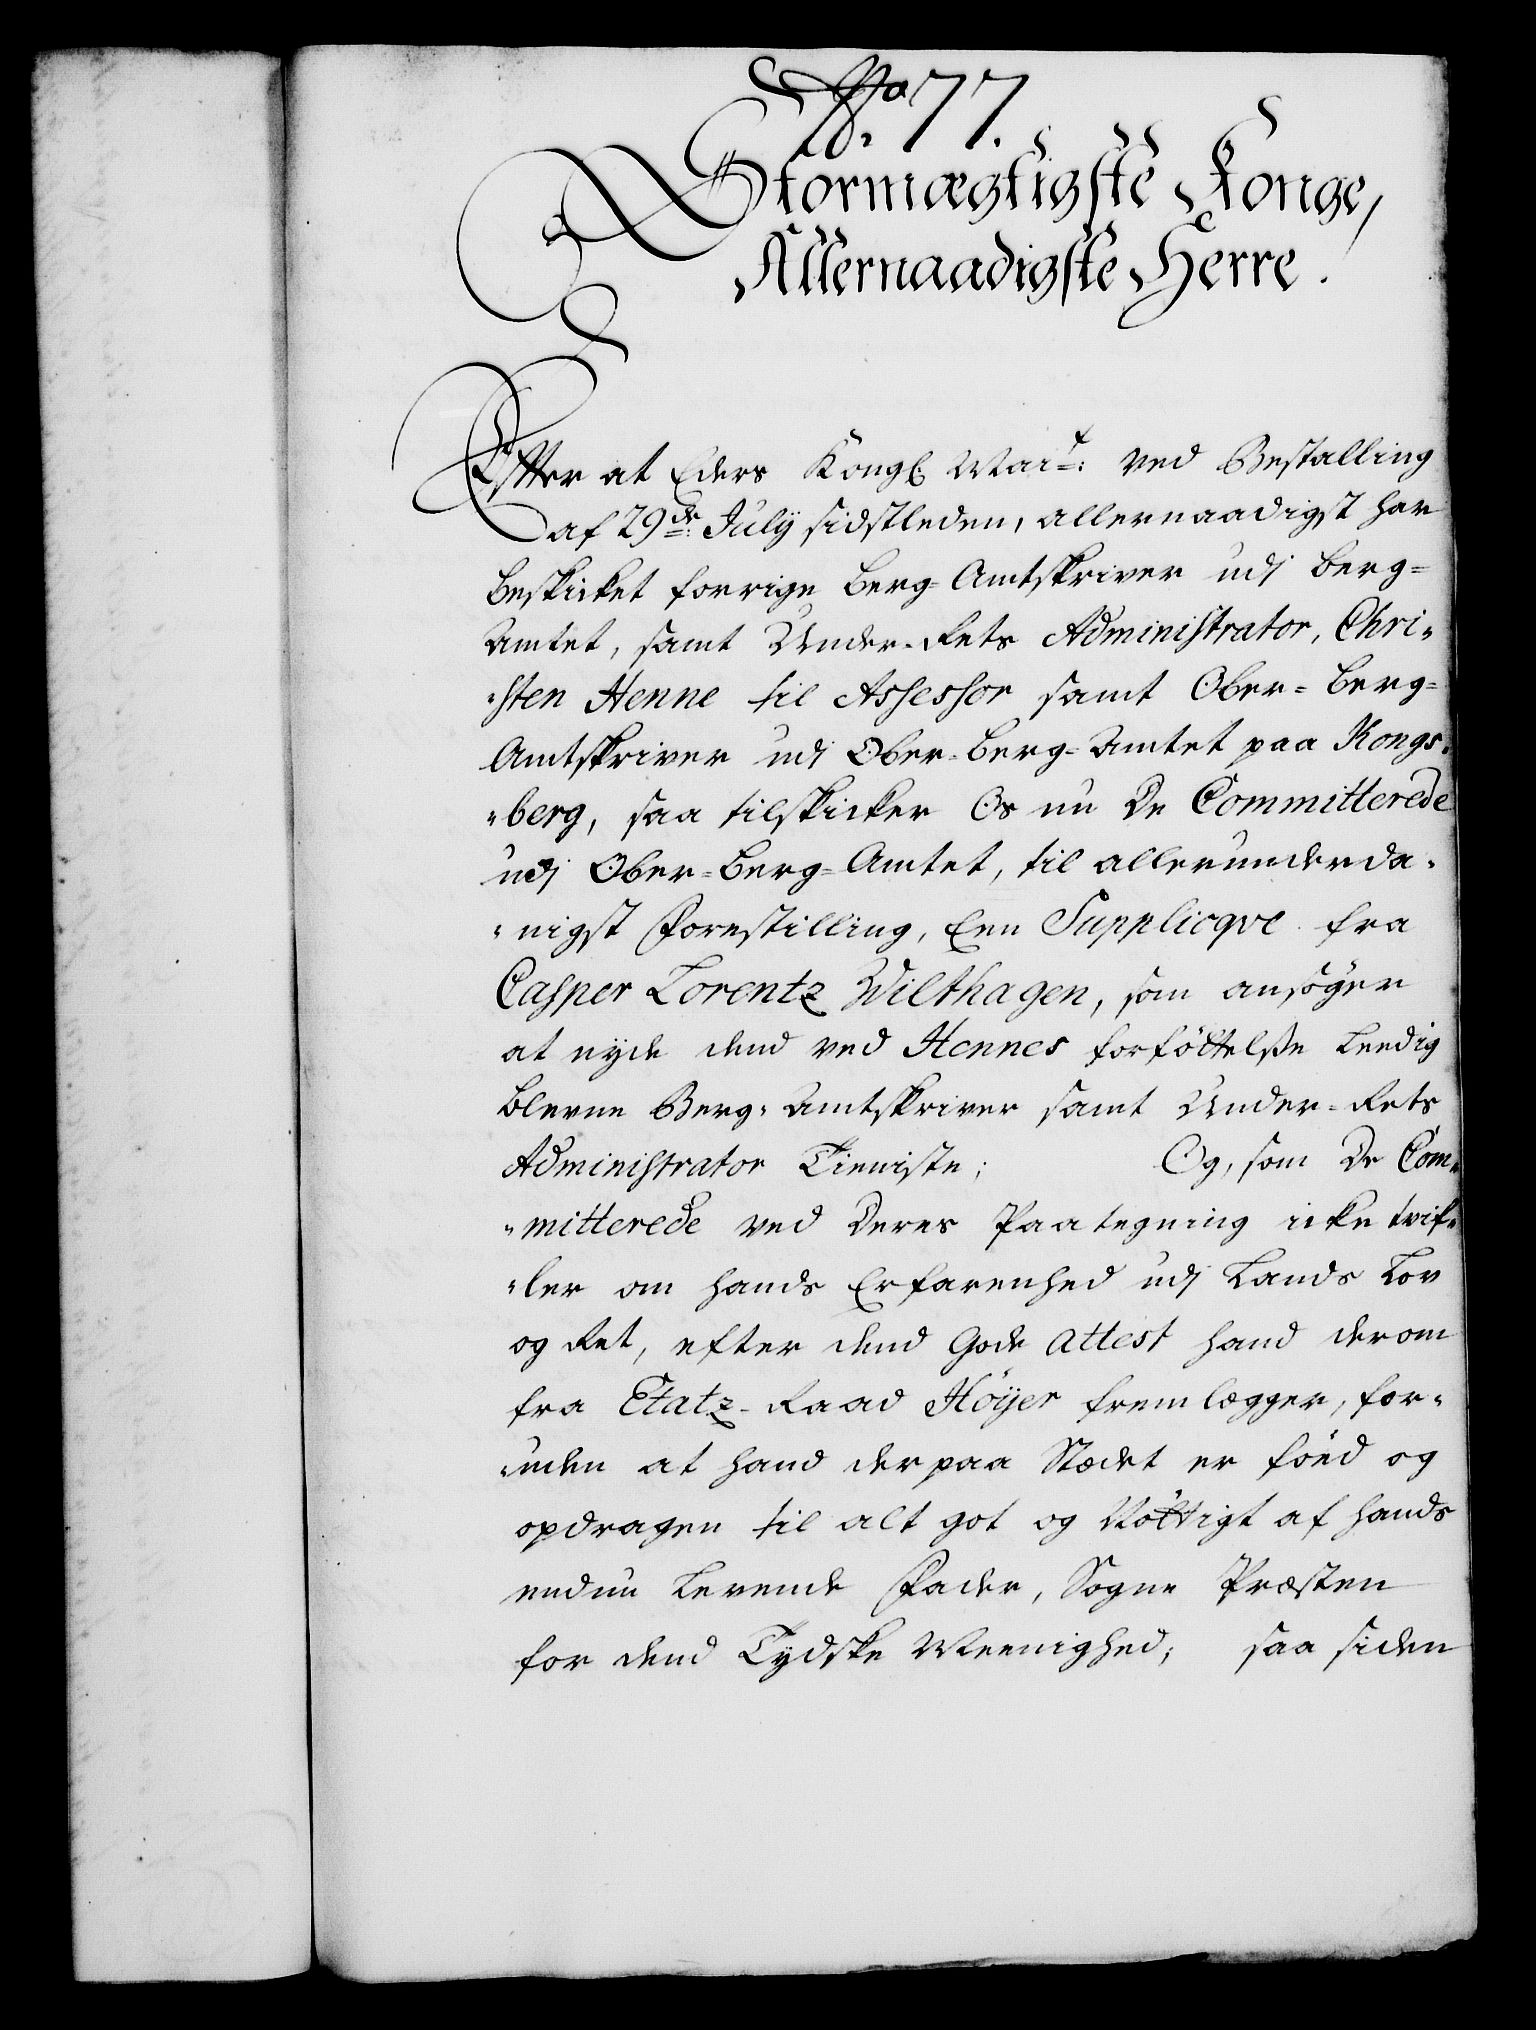 No. 77.
Stormægtigste Konge,
Allernaadigste Herre.
Efter at Eders Kongl. Mait: ved Bestalling
af 29de July sidstleden, allernaadigst har
beskikket forrige Berg-Amtskriver udj Berg-
Amtet, samt Under-Rets Administrator, Chri-
-sten Henne til Assessor samt Ober-Berg-
Amtskriver udj Ober-Berg-Amtet paa Kongs-
-berg, saa tilskicker Os nu De Committerede
udj Ober-Berg-Amtet, til allerunderda-
-nigst Forestilling, Een Supplicqve fra
Casper Lorentz Wilthagen, som ansöger
at nyde dend ved Hennes forföttelsse Leedig
blevne Berg-Amtskriver samt Under-Rets
Administrator Tieniste; Og, som De Com-
-mitterede ved Deres Paategning icke tvif-
-ler om hands Erfarenhed udj Lands Lov
og Ret, efter dend Gode Attest hand derom
fra Etatz-Raad Höyer fremlægger, for-
-uden at hand der paa Stædet er föed og
opdragen til alt got og Nöttigt af hands
endnu Levende Fader, Sogne Præsten
for dend Tydske Meenighed; saa siden